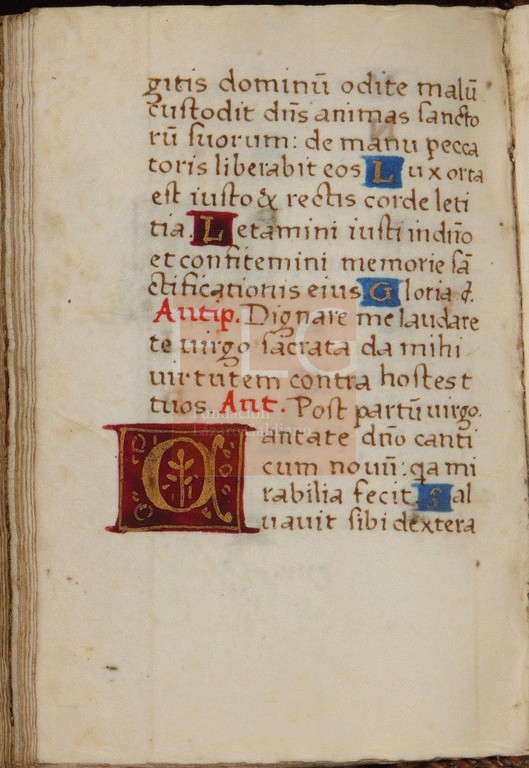 gitis dominū odite malū
custodit dn̄s animas sancto
rū suorum: de manu pecca
toris liberabit eos Lux orta
est iusto & rectis corde leti
tia. Letamini iusti in dn̄o
et confitemini memorie sā
ctificationis eius Gloria &.
Antip. Dignare me laudare
te uirgo sacrata da mihi
uirtutem contra hostes t
tuos. Ant. Post partū uirgo.
Cantate dn̄o canti
cum nouū: qa mi
rabilia fecit Sal
uauit sibi dextera
Fundación
Lázaro Galdiano